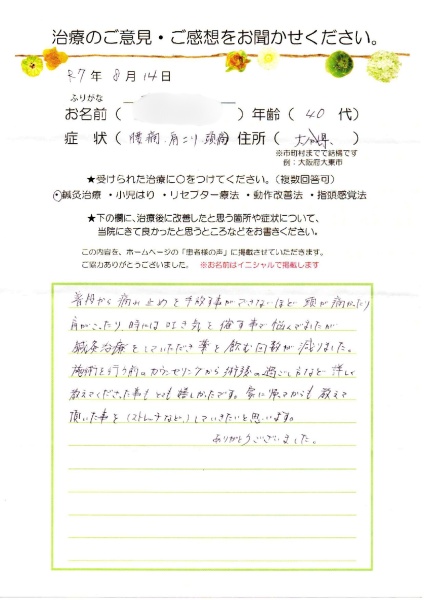 治療のご意見・ご感想をお聞かせください。
R7年 8月 14日
ふりがな
お名前( )年齢( 40 代)
症 状( 腰痛、肩こり、頭痛 )住所( 大 県、 )
※市町村までで結構です
例：大阪府大東市
★受けられた治療に○をつけてください。（複数回答可）
・鍼灸治療 ・小児はり ・リセプター療法 ・動作改善法 ・指頭感覚法
★下の欄に、治療後に改善したと思う箇所や症状について、
当院にきて良かったと思うところなどをお書きください。
この内容を、ホームページの「患者様の声」に掲載させていただきます。
ご協力ありがとうございました。 ※お名前はイニシャルで掲載します
普段から痛み止めを手放す事ができないほど頭が痛かったり
肩がこったり、時には吐き気を催す事で悩んでましたが
鍼灸治療をしていただき薬を飲む回数が減りました。
施術を行う前のカウンセリングから術後の過ごし方など詳しく
教えてくださった事もとても嬉しかったです。家に帰ってからも教えて
頂いた事を(ストレッチなど、)していきたいと思います。
ありがとうございました。